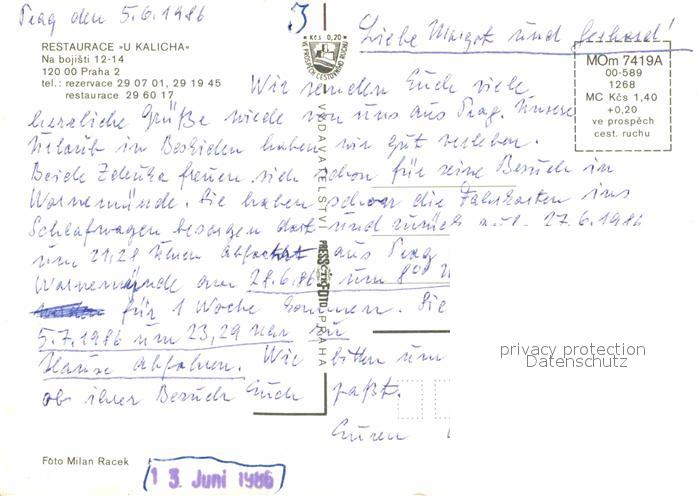 Prag den 5.6.1986
3
Liebe Margot und Gerhard!
RESTAURACE »U KALICHA«
Na bojišti 12-14
120 00 Praha 2
tel.: rezervace 29 07 01, 29 19 45
restaurace 29 60 17
Kčs 0,20
VE PROSPĚCH CESTOVNÍHO RUCHU
MOm 7419A
00-589
1268
MC Kčs 1,40
+0,20
ve prospěch
cest. ruchu
Wir senden Euch viele
herzliche Grüße wiede von uns aus Prag. Unsere
Urlaub in Beskiden haben wir gut verleben.
Beide Zdeňka freuen sich schon für seine Besuch in
Warnemünde. Sie haben schon die Fahrkarten ins
Schlafwagen besorgen dort und zurück 27.6.1986
um 21,28 Uhren Abfahrt aus Prag
Warnemünde am 28.6.86 um 8⁰⁰
für 1 Woche kommen. Sie
5.7.1986 um 23,29 Uhr zu
Hause abfahren. Wir bitten um
ob ihrer Besuch Euch paßt.
Euren
VYDAVATELSTVÍ
PRESSFOTO
PRAHA
privacy protection
Datenschutz
Foto Milan Racek
13. Juni 1986